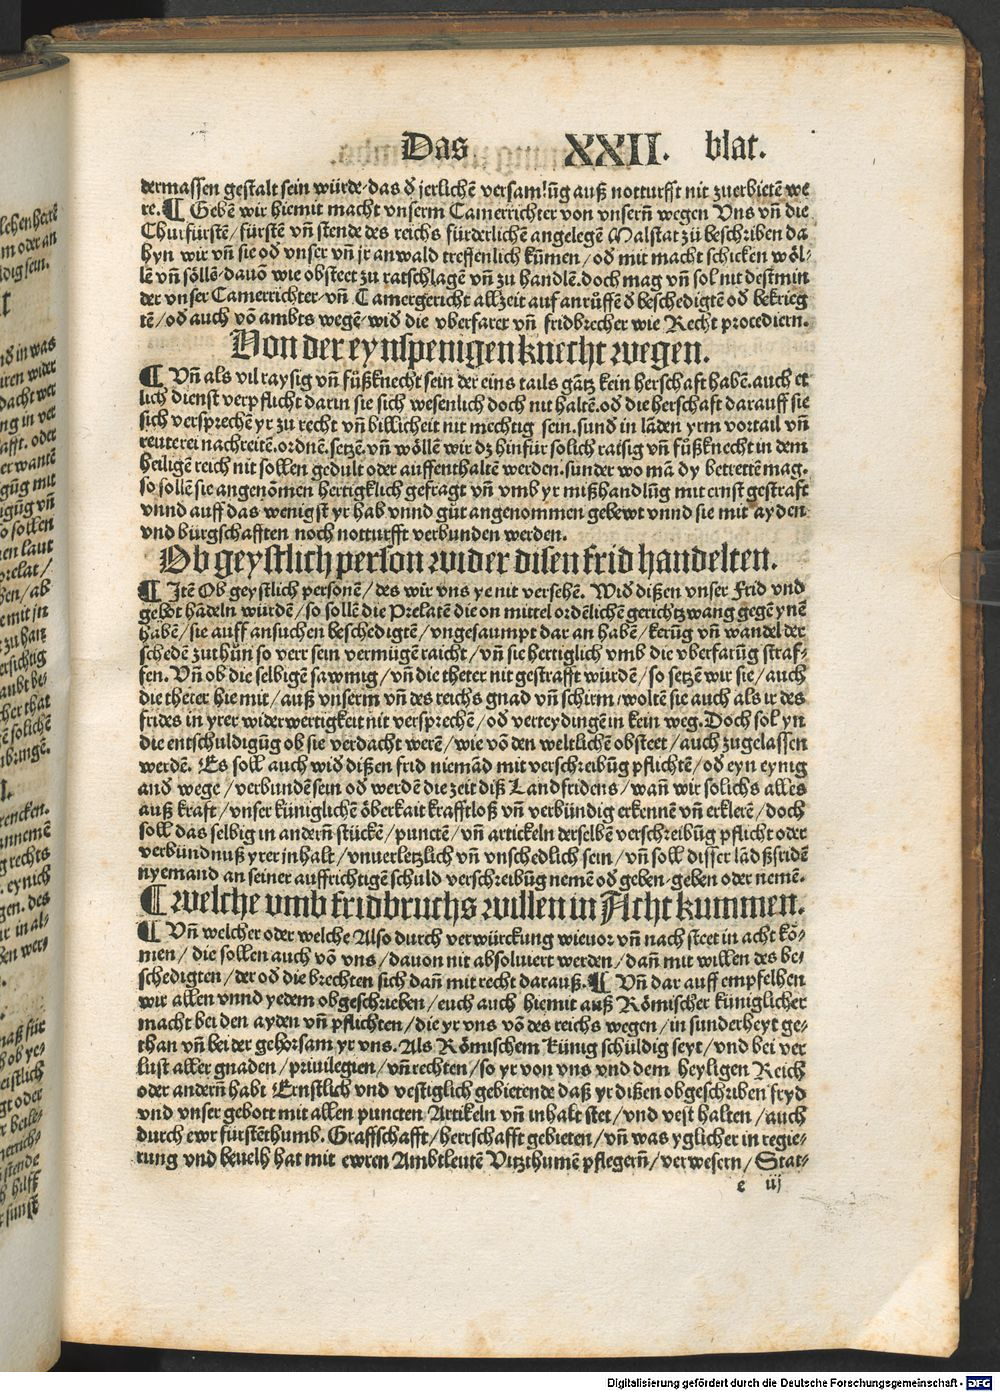 Das XXII. blat.
dermassen gestalt sein würde/das ď jerlichē versamlūg auß notturfft nit zuerbietē we
re. ¶ Gebē wir hiemit macht vnserm Camerrichter von vnserñ wegen Vns vñ die
Churfürstē/fürstē vñ stende des reichs fürderlichē angelegē Malstat zü beschribē da
hyn wir vñ sie oď vnser vñ jr anwald treffenlich kūmen/oď mit macht schicken wöl-
lē vñ söllē.dauō wie obsteet zu ratschlagē vñ zu handlē.doch mag vñ sol nit destmin
der vnser Camerrichter/vñ Camergericht allzeit auf anrüffē ď beschedigtē oď bekrieg
tē/oď auch vō ambts wegē/wiď die vberfarer vñ fridbrecher wie Recht procediern.
Von der eynspenigen knecht wegen.
¶ Vñ als vil raysig vñ fůßknecht sein der eins tails gātz kein herschaft habē.auch et
lich dienst verpflicht darin sie sich wesenlich doch nit haltē.oď die herschaft darauff sie
sich versprechē yr zu recht vñ billicheit nit mechtig sein.sund in lādē yrm vortail vñ
reuterei nachreitē.ordnē.setzē.vñ wöllē wir dz hinfür solich raisig vñ fůßknecht in dem
heiligē reich nit sollen gedult oder auffenthaltē werden.sunder wo mā dy betrettē mag.
so sollē sie angenōmen hertigklich gefragt vñ vmb yr mißhandlūg mit ernst gestraft
vnnd auff das wenigst yr hab vnnd gůt angenommen gebewt vnnd sie mit ayden
vnd bürgschafften noch notturfft verbunden werden.
Ob geystlich person wider disen frid handelten.
¶ Itē Ob geystlich personē/des wir vns ye nit versehē. Wiď dißen vnser Frid vnd
gebot hādeln würdē/so sollē die Prelatē die on mittel ordēlichē gerichtzwang gegē ynē
habē/sie auff ansuchen beschedigtē/vngesaumpt dar an habē/kerūg vñ wandel der
schedē zuthůn so verr sein vermügē raicht/vñ sie hertiglich vmb die vberfarūg straf-
fen. Vñ ob die selbigē sawmig/vñ die theter nit gestrafft würdē/so setzē wir sie/auch
die theter hie mit/auß vnserm vñ des reichs gnad vñ schirm/woltē sie auch als ir des
frides in yrer widerwertigkeit nit versprechē/oď verteydingē in kein weg. Doch sol yn
die entschuldigūg ob sie verdacht werē/wie vō den weltlichē obsteet/auch zugelassen
werdē. Es soll auch wiď dißen frid niemād mit verschreibūg pflichtē/oď eyn eynig
and wege/verbundē sein oď werdē die zeit diß Landfridens/wañ wir solichs alles
auß kraft/vnser küniglichē öberkait krafftloß vñ verbündig erkennē vñ erklerē/doch
soll das selbig in anderñ stückē/punctē/vñ artickeln derselbē verschreibūg pflicht oder
verbündnuß yrer inhalt/vnuerletzlich vñ vnschedlich sein/vñ soll disser lādßfridē
nyemand an seiner auffrichtigē schuld verschreibūg nemē oď geben-geben oder nemē.
¶ welche vmb fridbruchs willen in Acht kummen.
¶ Vñ welcher oder welche Also durch verwürckung wieuor vñ nach steet in acht kō-
men/die sollen auch vō vns/dauon nit absoluiert werden/dañ mit willen des be-
schedigten/der oď die brechten sich dañ mit recht darauß. ¶ Vñ dar auff empfelhen
wir allen vnnd yedem obgeschrieben/euch auch hiemit auß Römischer küniglicher
macht bei den ayden vñ pflichten/die yr vns vō des reichs wegen/in sunderheyt ge-
than vñ bei der gehorsam yr vns. Als Römischem Künig schüldig seyt/vnd bei ver
lust aller gnaden/priuilegien/vñ rechten/so yr von vns vnd dem heyligen Reich
oder anderñ habt Ernstlich vnd vestiglich gebietende daß yr dißen obgeschriben fryd
vnd vnser gebott mit allen puncten Artikeln vñ inhalt stet/vnd vest halten/auch
durch ewr fürstēthumb. Graffschafft/herrschafft gebieten/vñ was yglicher in regie-
rung vnd beuelh hat mit ewren Ambtleutē Vitzthumē pflegerñ/verwesern/Stat-
e iij
Digitalisierung gefördert durch die Deutsche Forschungsgemeinschaft - DFG